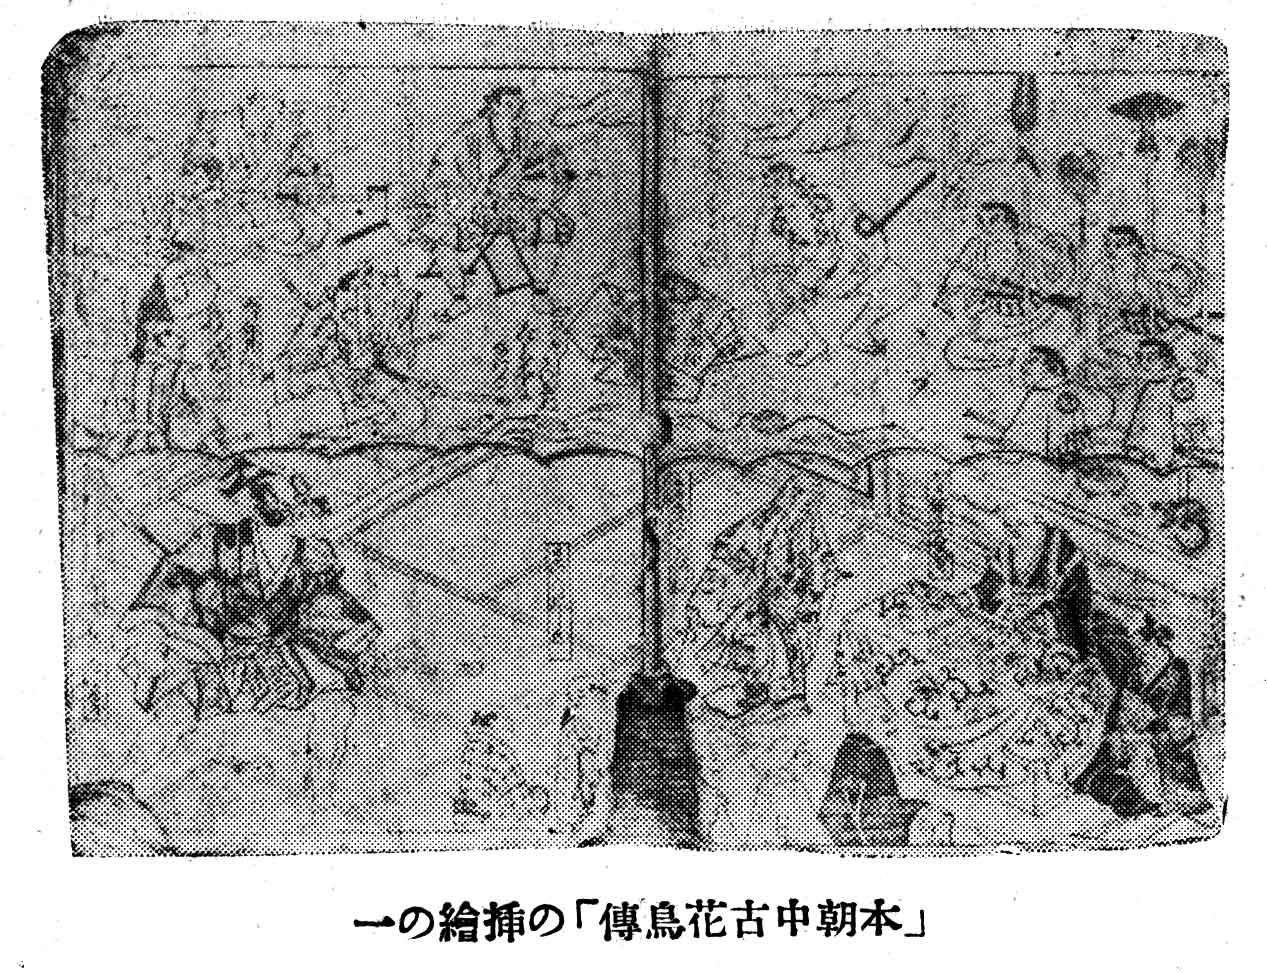 「本朝中古花鳥傳」の挿繪の一